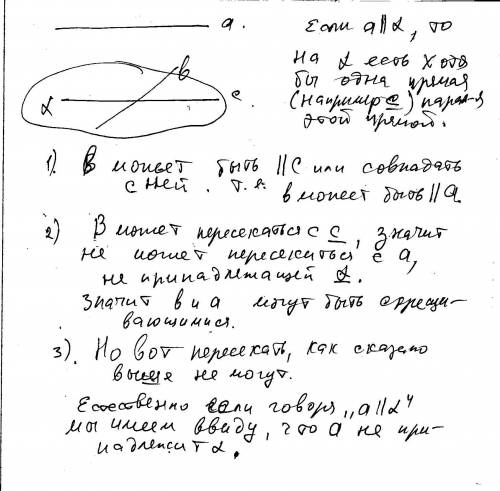 a.
Если a∥α, то
на α есть хотя
бы одна прямая
(например c) парал-я
этой прямой.
в
α
c.
1). В может быть ∥ C или совпадать
с ней. т.е.
в может быть ∥ a.
2) В может пересекаться с c, значит
не может пересекиться с a,
не принадлежащей α.
Значит в и а могут быть скрещи-
вающимися.
3). Но вот пересекать, как сказано
выше не могут.
Естественно если говоря „a∥α"
мы имеем ввиду, что а не при-
надлежит α.